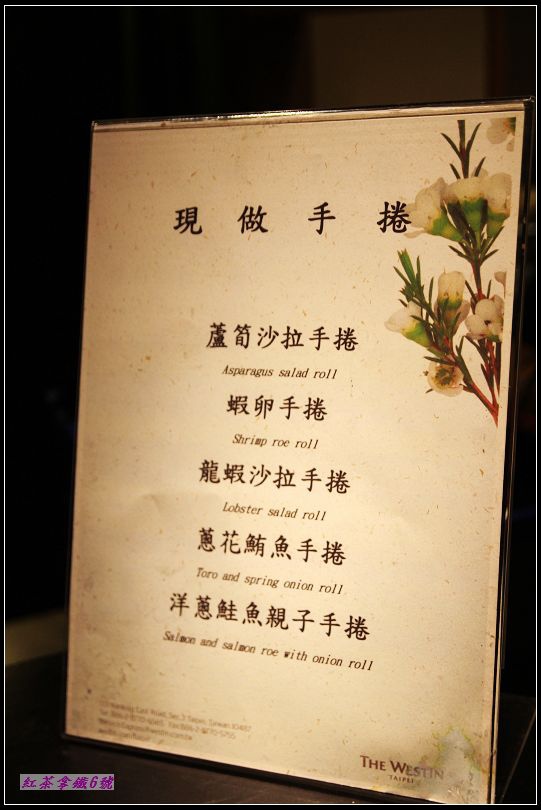 現做手捲
蘆筍沙拉手捲
Asparagus salad roll
蝦卵手捲
Shrimp roe roll
龍蝦沙拉手捲
Lobster salad roll
蔥花鮪魚手捲
Toro and spring onion roll
洋蔥鮭魚親子手捲
Salmon and salmon roe with onion roll
133 Nanking East Road, Sec.3, Taipei, Taiwan 10487
THE WESTIN
TAIPEI
紅茶拿鐵6號